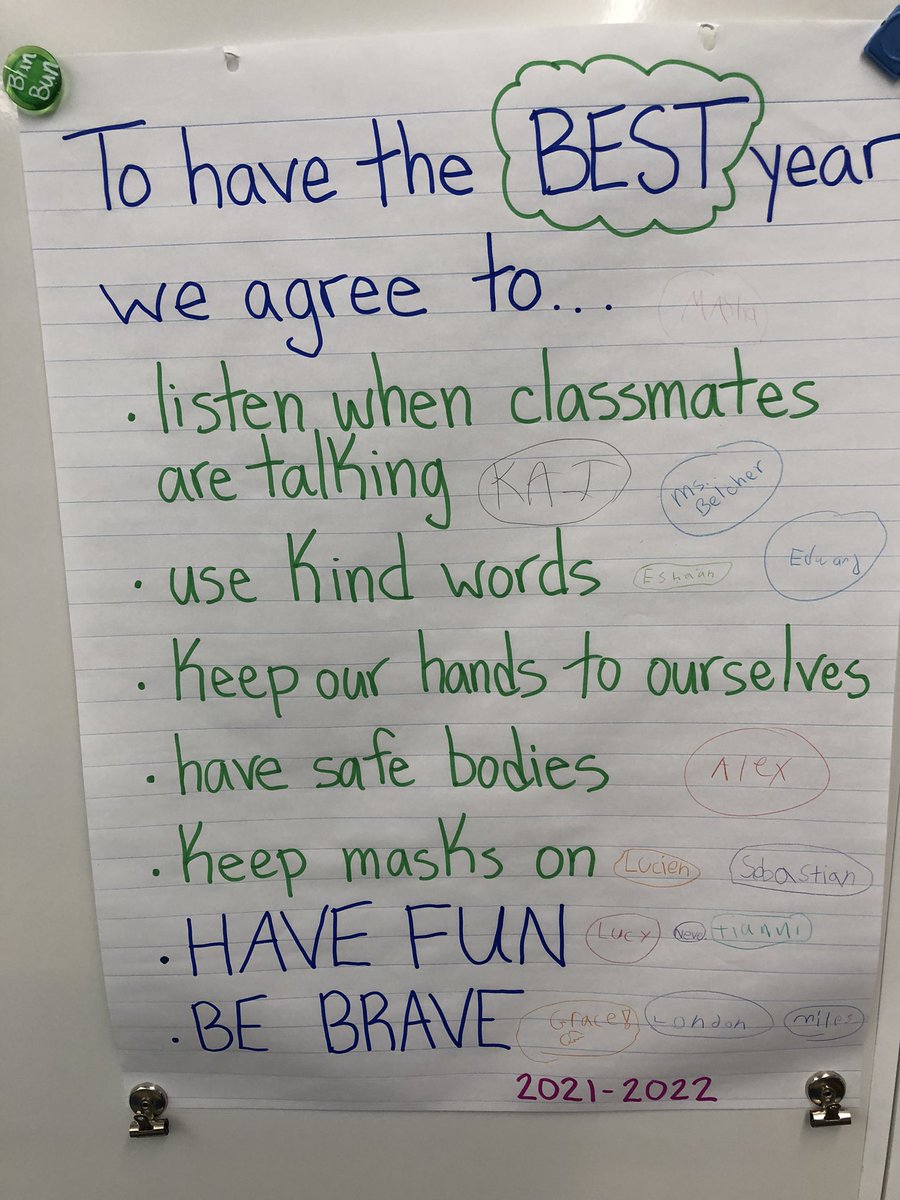 Blin
Bun
To have the BEST year
we agree to...
· listen when classmates
are talking KAI Ms. Belcher
· use kind words Eshaan Edward
· Keep our hands to ourselves
· have safe bodies Alex
· Keep masks on Lucien Sebastian
· HAVE FUN Lucy Neva tianni
· BE BRAVE Grace London miles
2021-2022